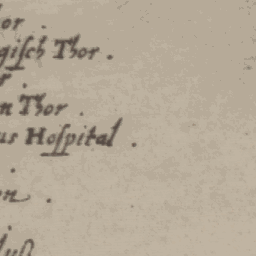 or.
gisch Thor.
r.
n Thor.
us Hospital.
.
on.
luß